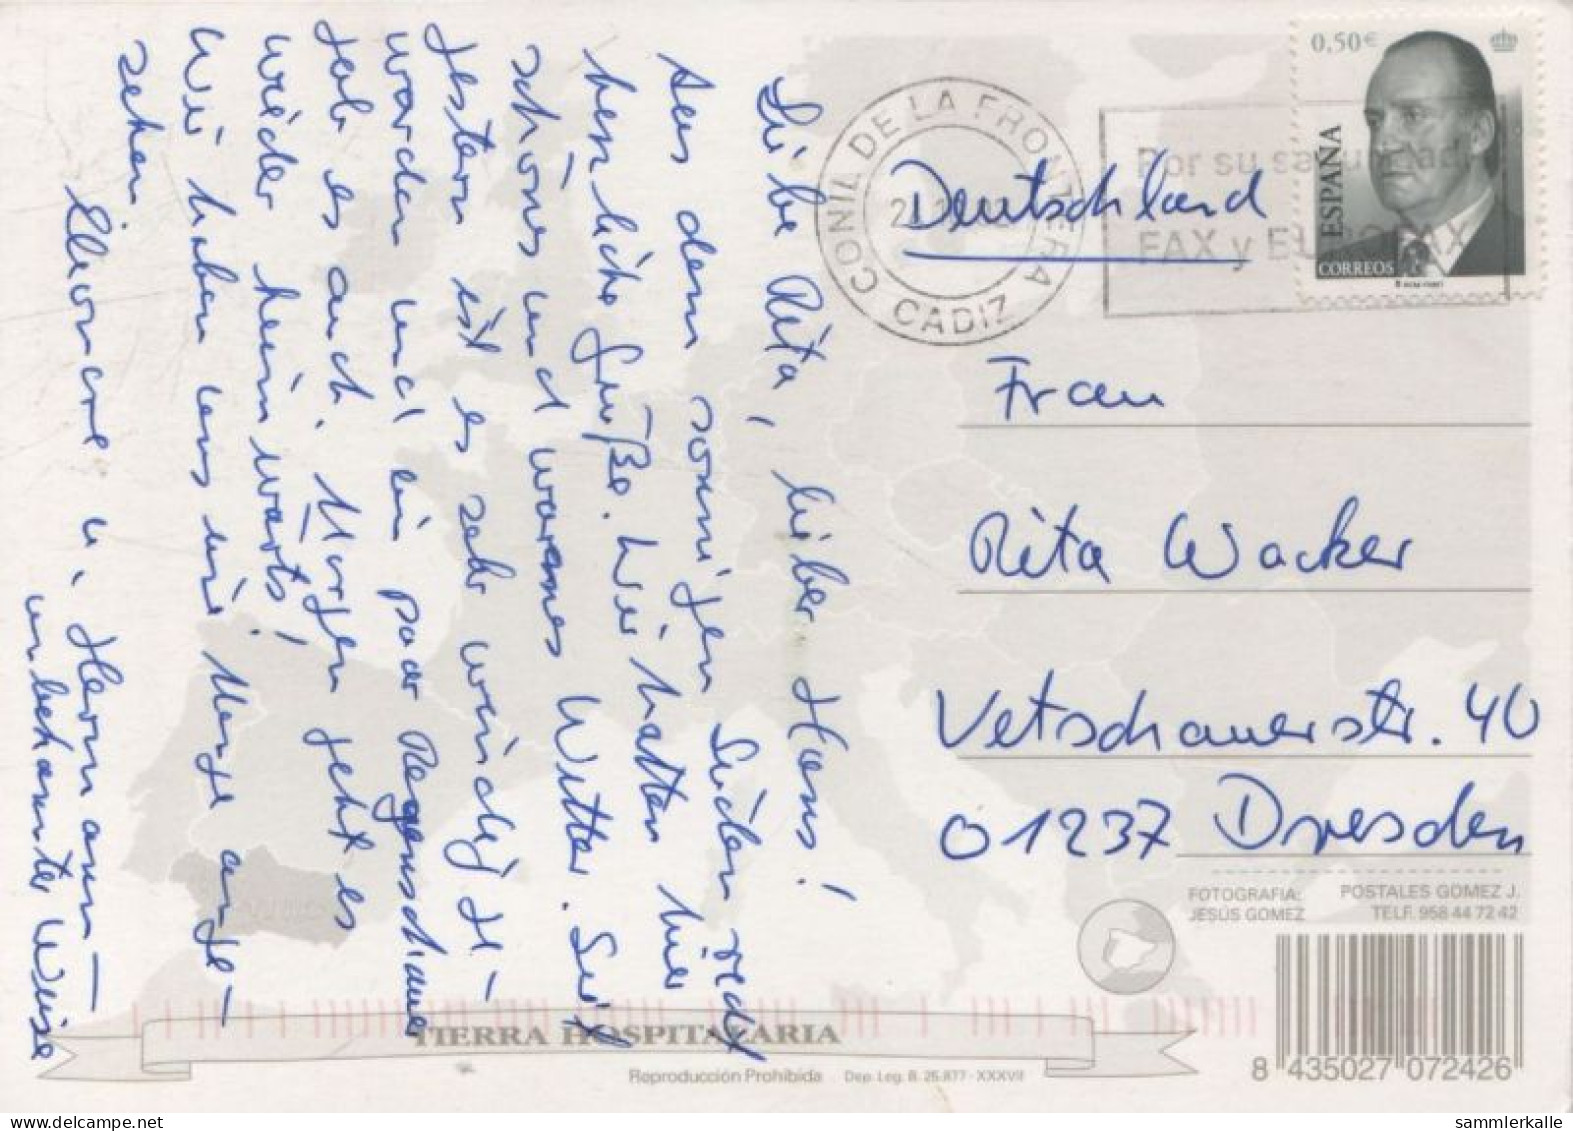 Liebe Rita, lieber Hans!
Aus dem sonnigen Süden recht
herzliche Grüße. Wir hatten hier
schönes und warmes Wetter. Seit
gestern ist es sehr windig ge-
worden und ein paar Regenschauer
gab es auch. Morgen geht es
wieder heimwärts!
Wir haben uns eine Menge ange-
sehen.
Eleonore u. Hermann
unbekannter Weise
CONIL DE LA FRONTERA
CADIZ
Por su
FAX y EUROFAX
0,50€
ESPAÑA
CORREOS
Deutschland
Frau
Rita Wacker
Vetschauerstr. 40
01237 Dresden
FOTOGRAFIA:
JESÚS GOMEZ
POSTALES GOMEZ J.
TELF. 958 44 72 42
TIERRA HOSPITALARIA
Reproducción Prohibida Dep. Leg. B. 25.877 - XXXVII
8 435027 072426
sammlerkalle